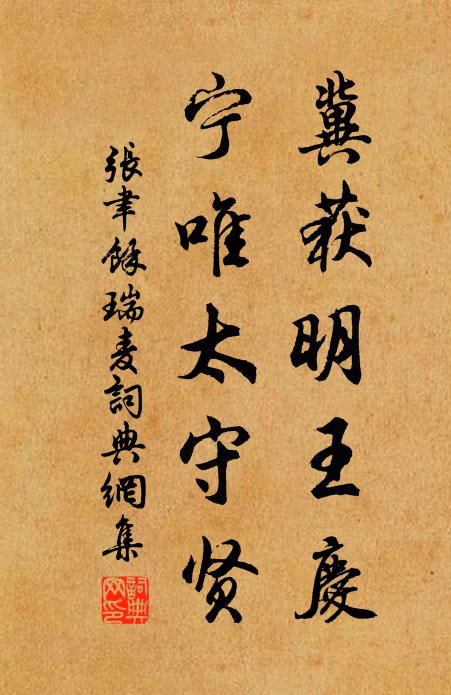 冀获明王慶
宁唯太守贤
張聿餘瑞麦詞典網集
詞典网印